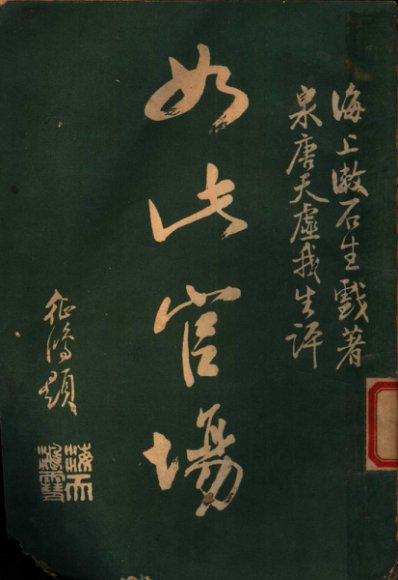 海上漱石生戲著
泉唐天虛我生評
如此官場
征鴻題